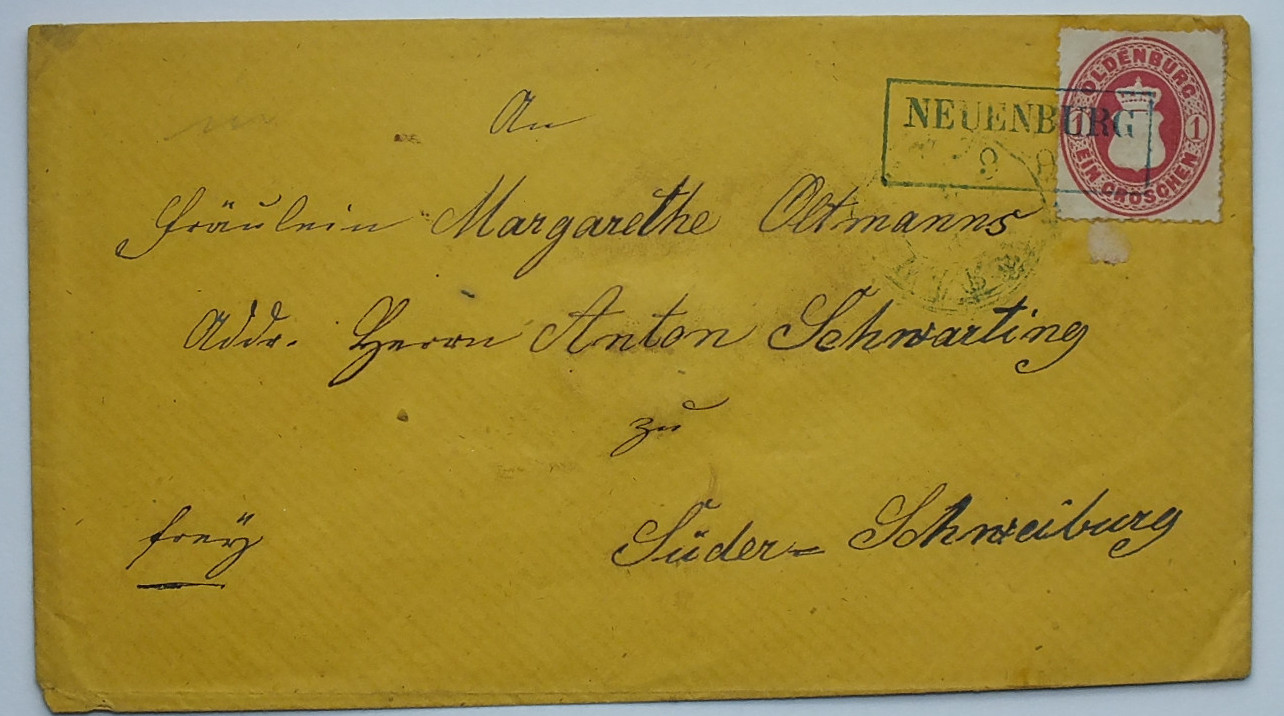 OLDENBURG
1 1
EIN GROSCHEN
NEUENBURG
9
An
Fräulein Margarethe Oltmanns
Addr. Herrn Anton Schwarting
zu
Süder= Schweiburg
freÿ